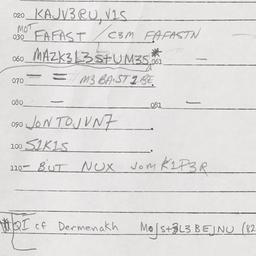 020 KAJV3RU,V1S
MOT
030 FAFAST / C3M FAFASTN
060 MAZK3L3S+UM3S* 061 —
070 — = M3BA.ST2BE
080 — 081 —
090 JONTOJVN7
100 S1K1S
110 — BUT NUX JOMK1P3R
QI cf Dermenakh MoJS+3L3BEJNU (82